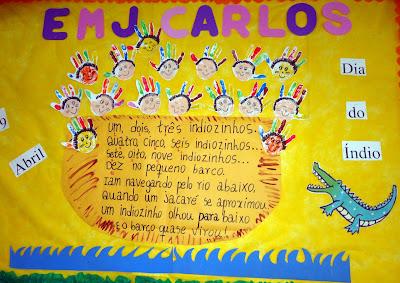 EMJ CARLOS
Dia
do
Índio
9
Abril
Um, dois, três indiozinhos...
Quatro, cinco, seis indiozinhos...
Sete, oito, nove indiozinhos...
Dez no pequeno barco.
Iam navegando pelo rio abaixo,
quando um jacaré se aproximou
um indiozinho olhou para baixo
E o barco quase virou!